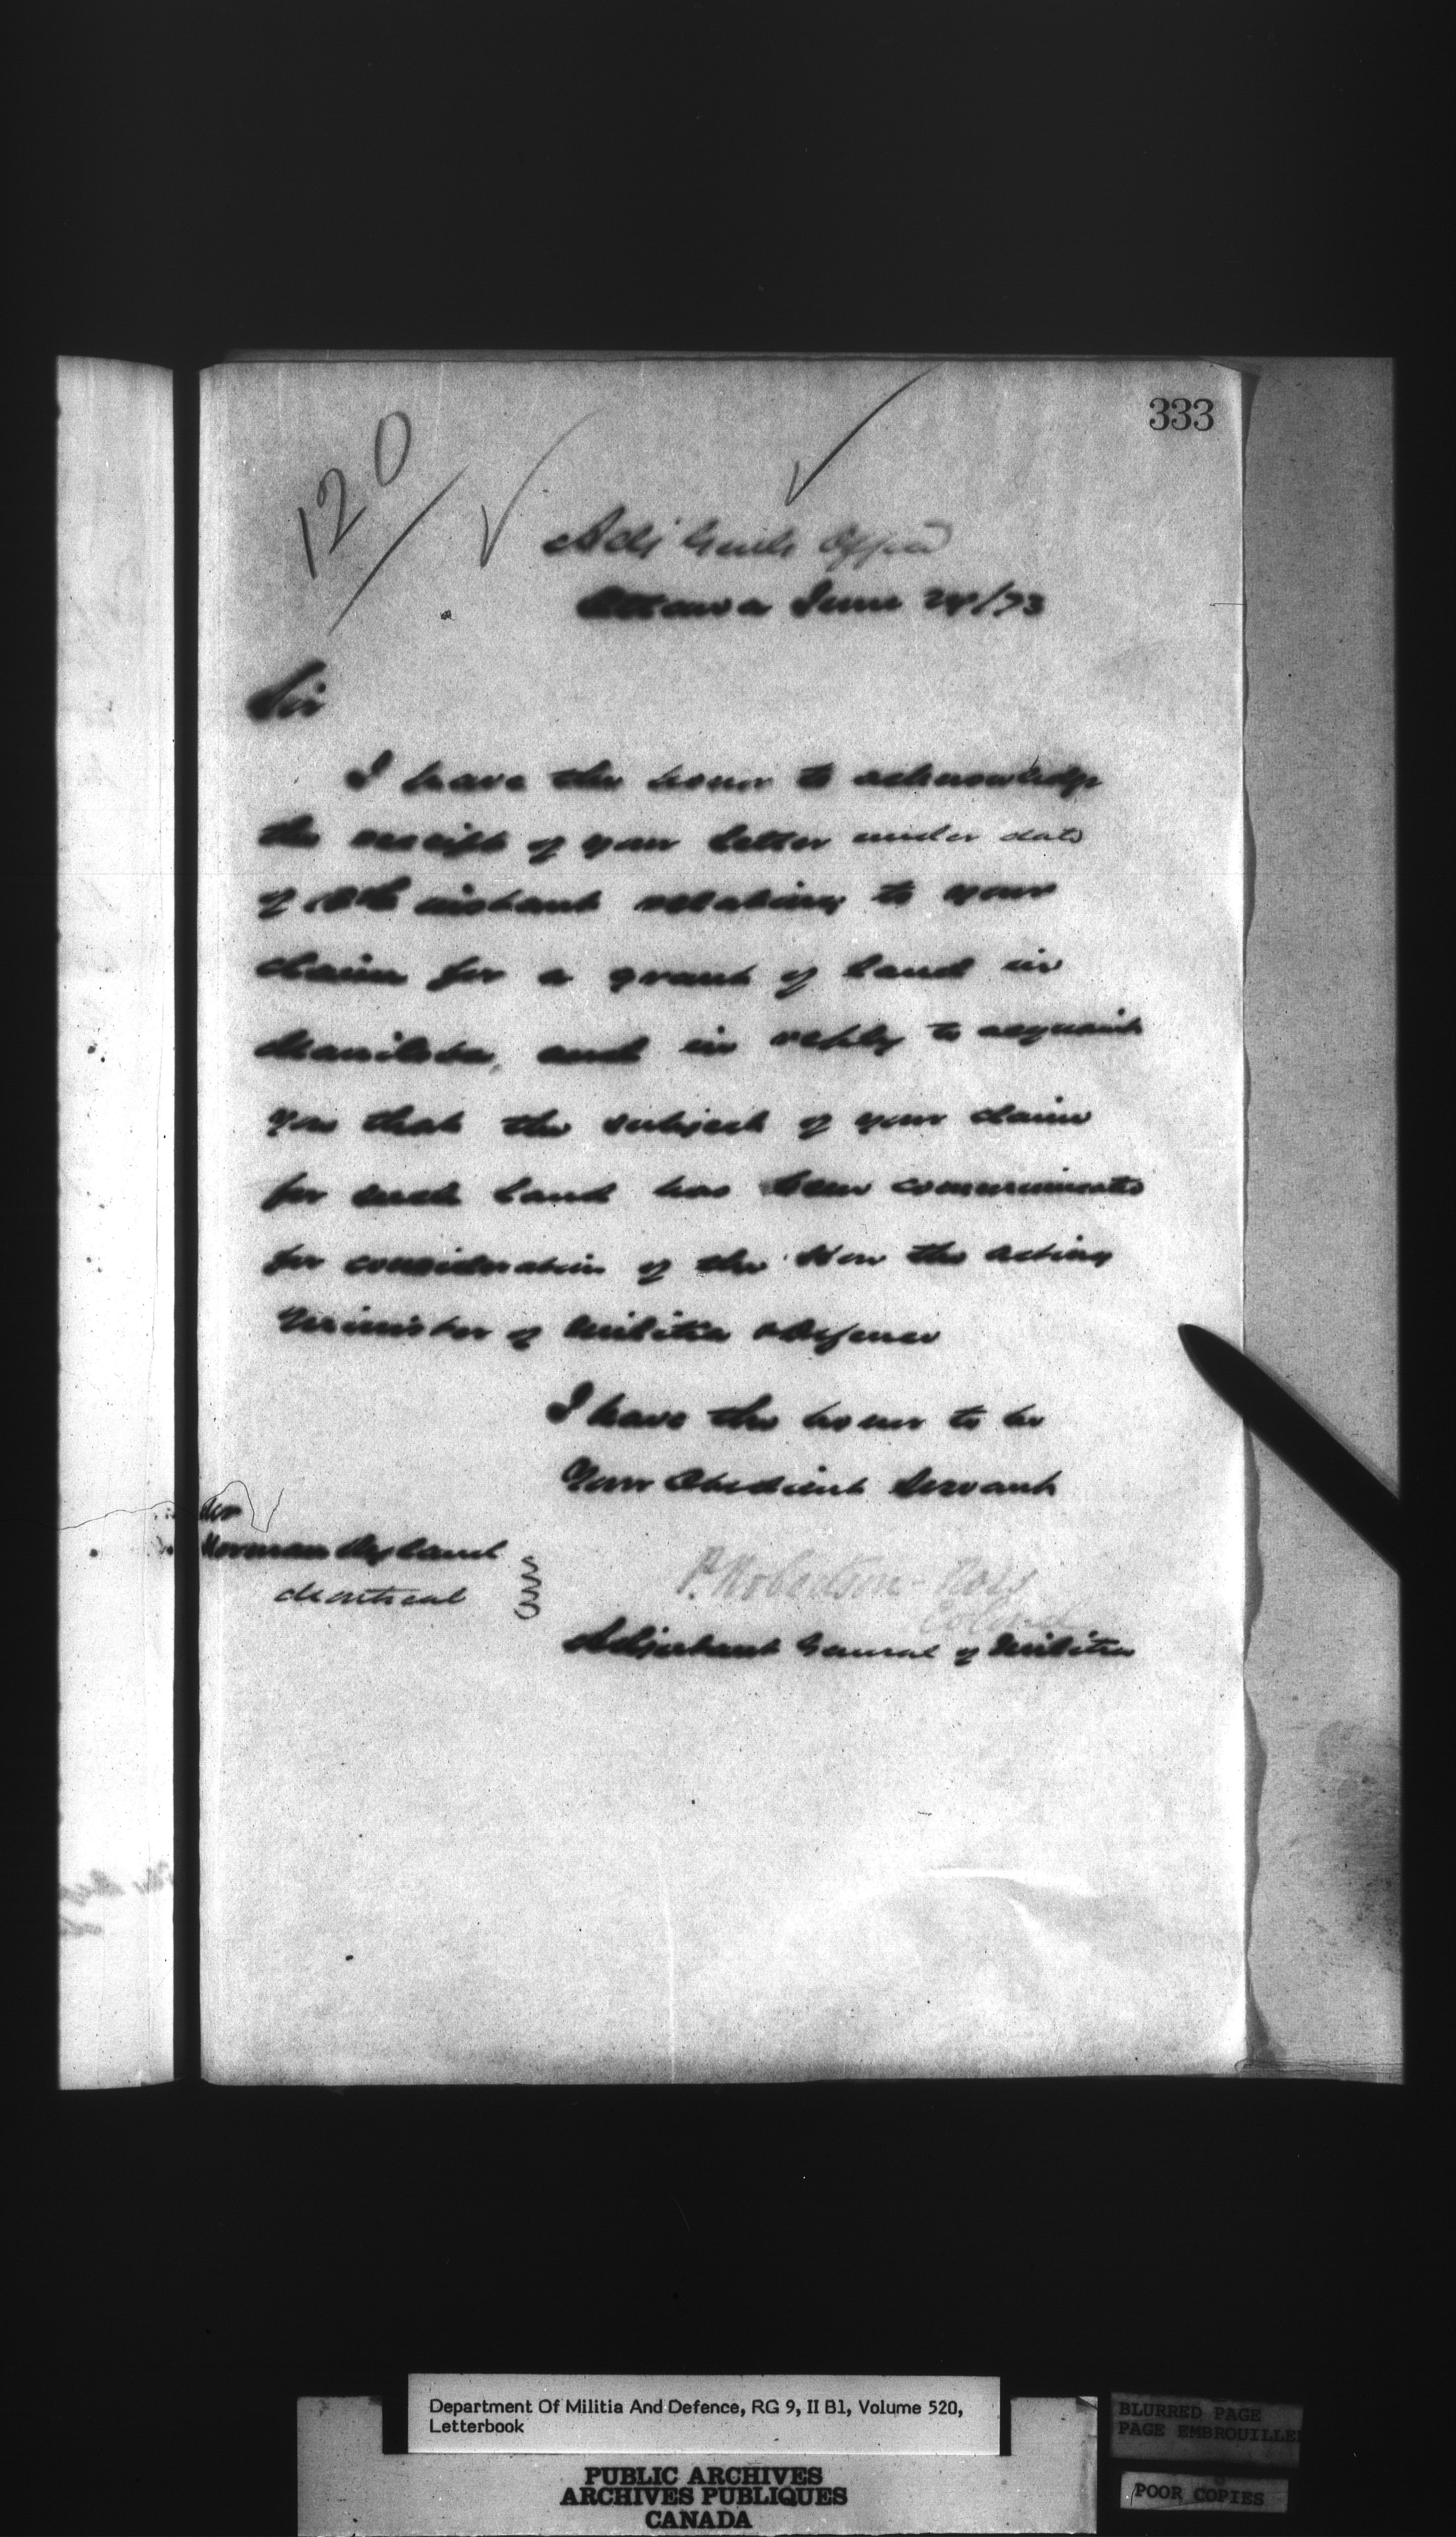 333
120
Adj Genls Office
Ottawa June 24/73
Sir
I have the honor to acknowledge
the receipt of your letter under date
of instant relating to your
claim for a grant of land in
Manitoba, and in reply to acquaint
you that the subject of your claim
for such land has been communicated
for consideration of the Hon the Acting
Minister of Militia & Defence
I have the honor to be
Your Obedient Servant
Norman
Montreal
P. Robertson-Ross
Colonel
Adjutant General of Militia
Department Of Militia And Defence, RG 9, II B1, Volume 520,
Letterbook
PUBLIC ARCHIVES
ARCHIVES PUBLIQUES
CANADA
BLURRED PAGE
PAGE EMBROUILLE
POOR COPIES